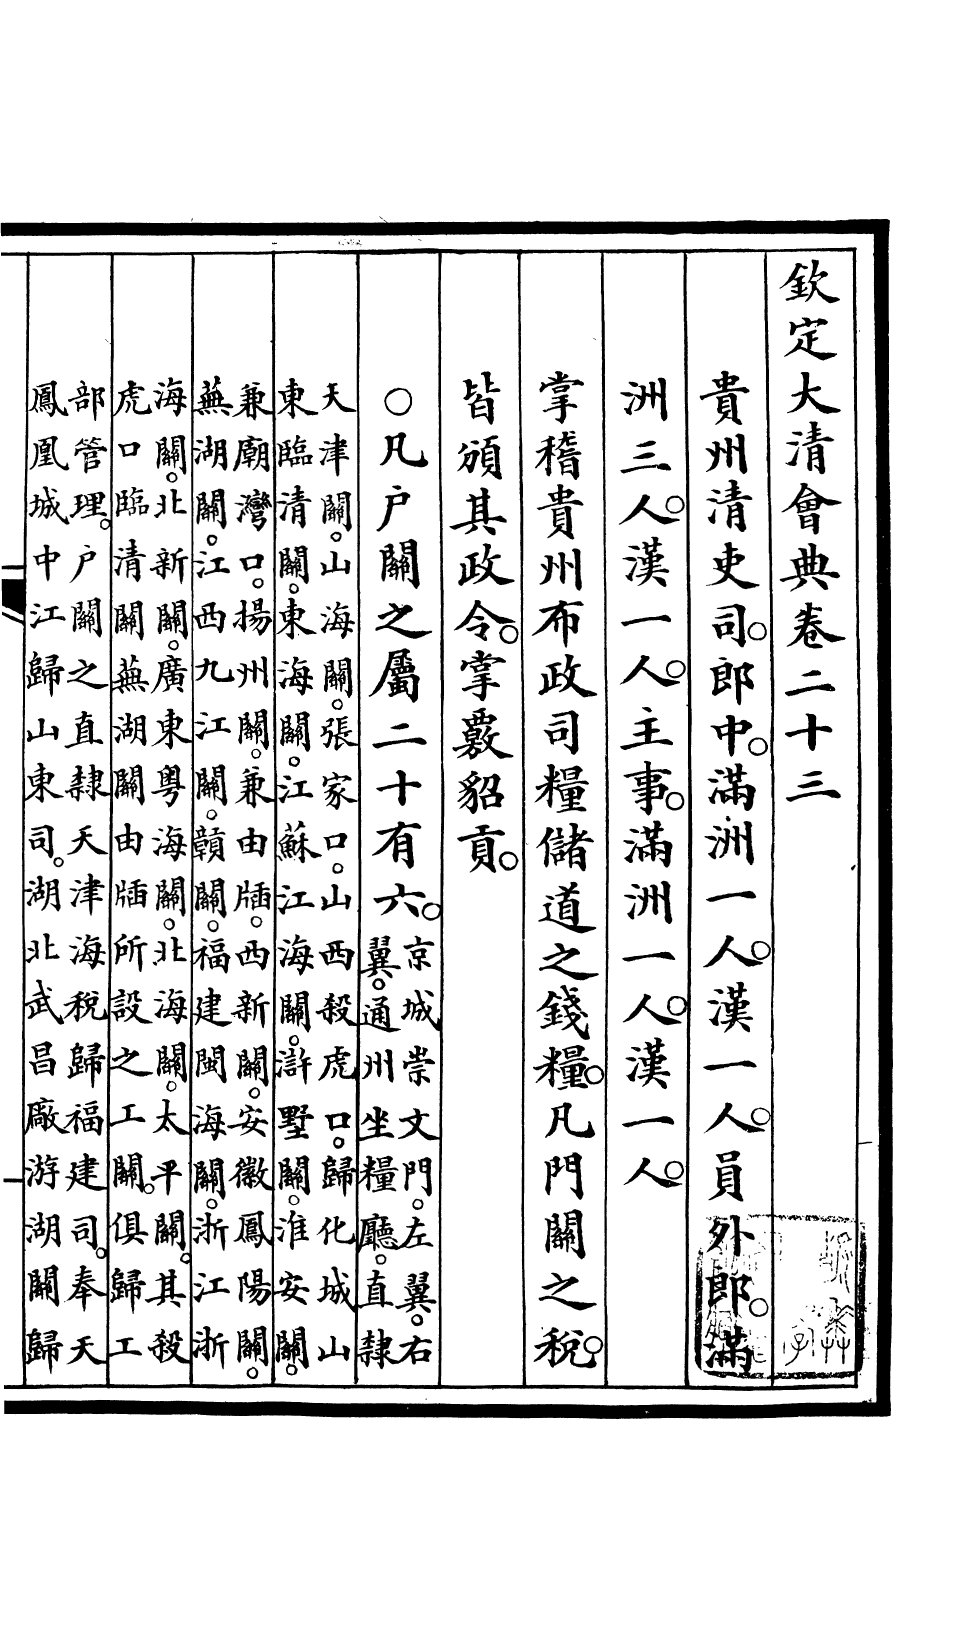 欽定大清會典卷二十三
貴州清吏司。郎中。滿洲一人。漢一人。員外郎。滿
洲三人。漢一人。主事。滿洲一人。漢一人。
掌稽貴州布政司糧儲道之錢糧。凡門關之稅。
皆頒其政令。掌覈貂貢。
○凡户關之屬二十有六。京城崇文門。左翼。右
翼。通州坐糧廳。直隸
天津關。山海關。張家口。山西殺虎口。歸化城山
東臨清關。東海關。江蘇江海關。滸墅關。淮安關。
兼廟灣口。揚州關。兼由牐。西新關。安徽鳳陽關。
蕪湖關。江西九江關。贛關。福建閩海關。浙江浙
海關。北新關。廣東粵海關。北海關。太平關。其殺
虎口臨清關蕪湖關由牐所設之工關。俱歸工
部管理。户關之直隸天津海稅歸福建司。奉天
鳳凰城中江歸山東司。湖北武昌廠游湖關歸